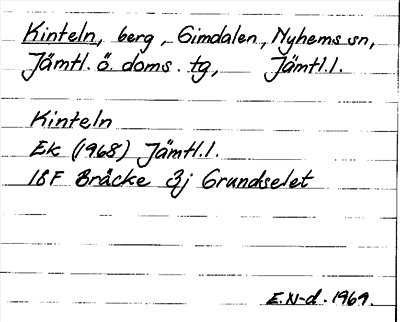 Kinteln, berg, Gimdalen, Nyhems sn,
Jämtl. ö. doms. tg, Jämtl.l.
Kinteln
Ek (1968) Jämtl.l.
18F Bräcke 3j Grundselet
E.N-d. 1969.